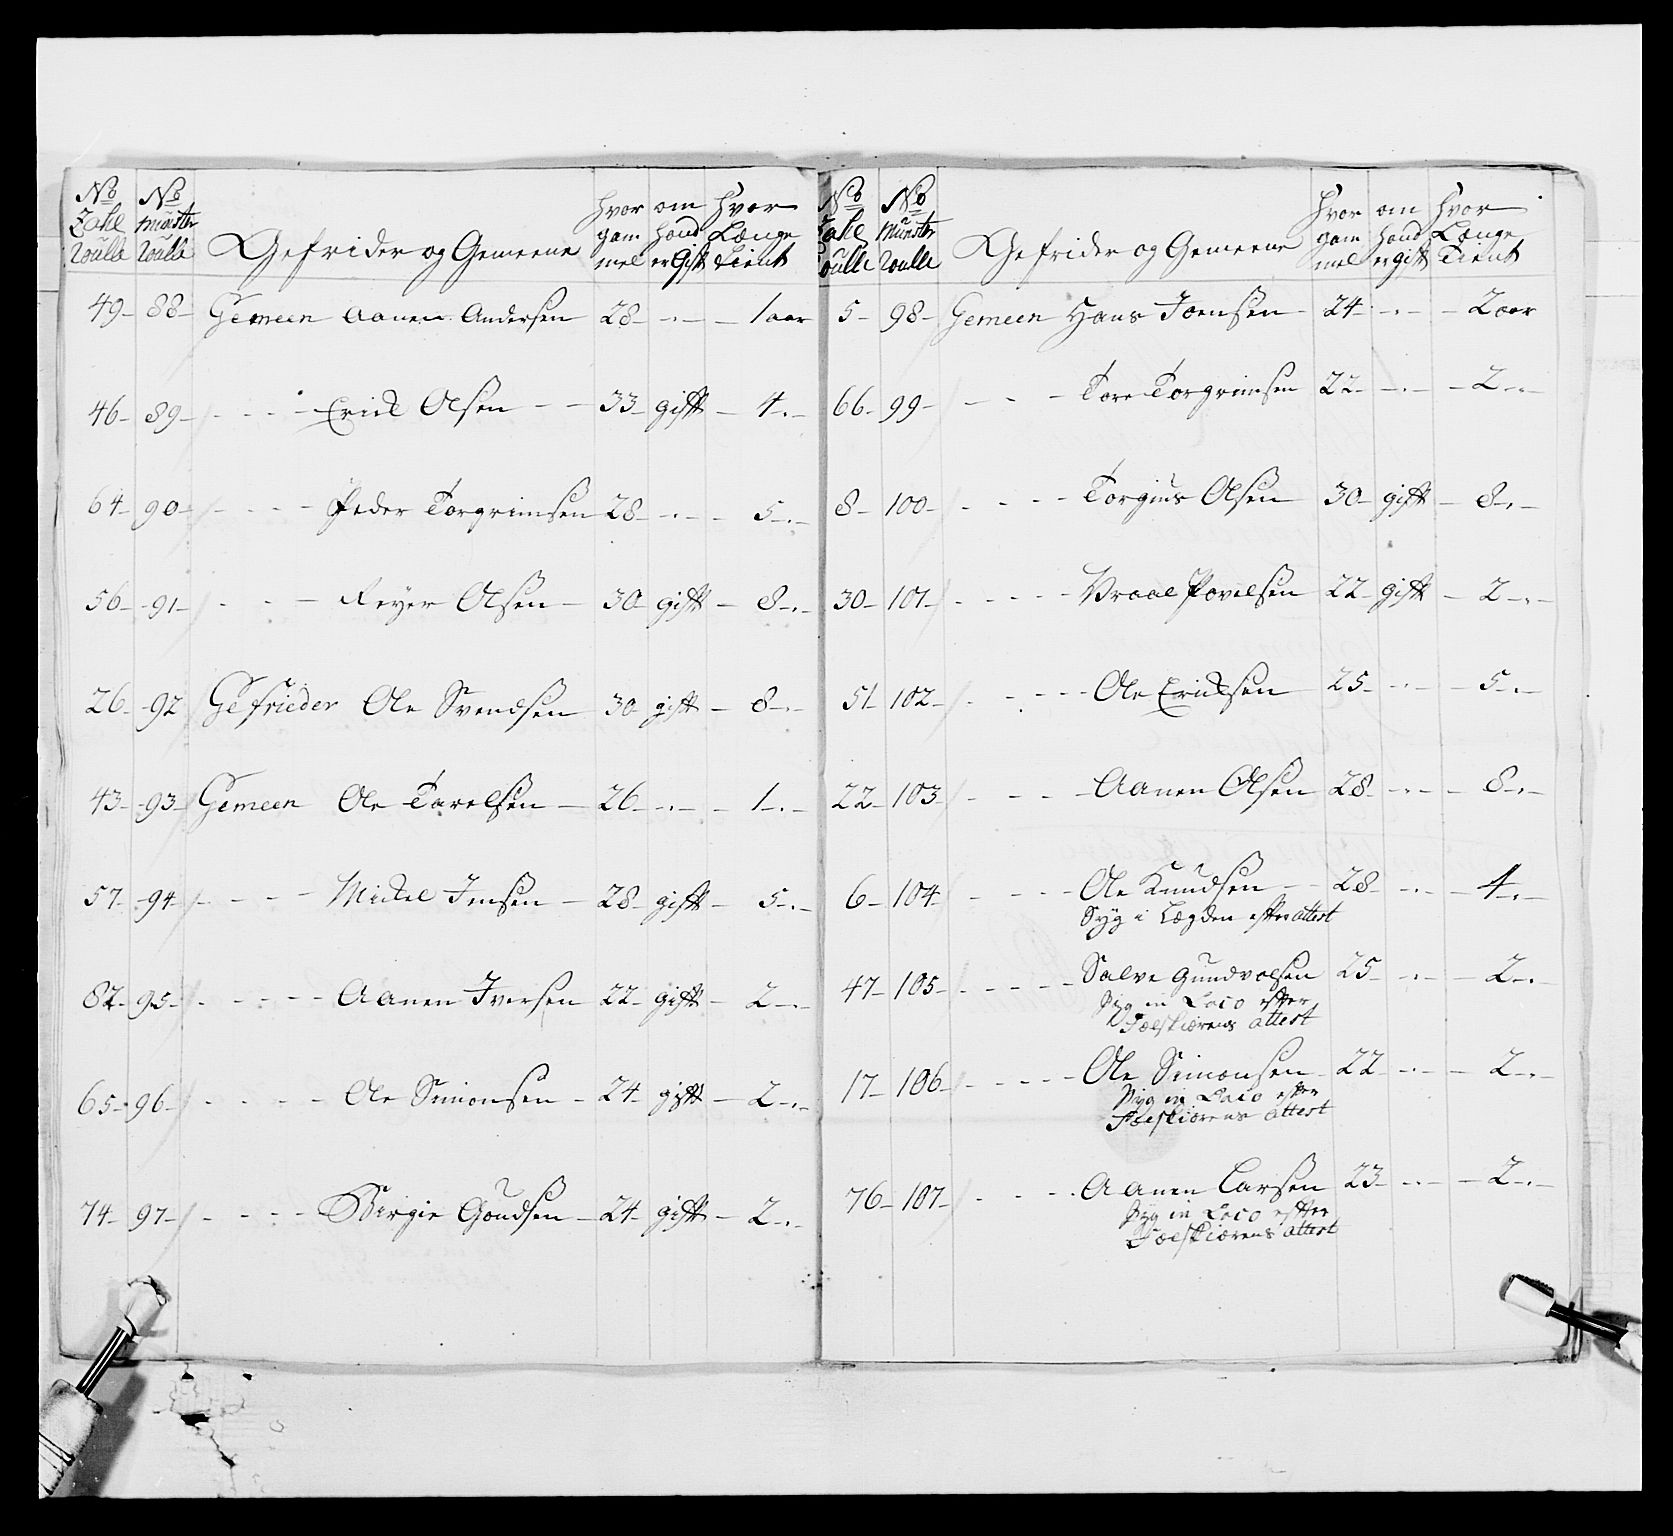 No No hvor om hvor
Zahl Münster gam hand Længe
Roulle Roulle Gefrider og Gemeene mel er Gift tient
49 - 88 - Gemeen Aanen Andersen 28 - . - - 1 aar
46 - 89 - - - - Erick Olsen - - 33 - gift - 4 . -
64 - 90 - - - - Peder Torgrimsen 28 - . - - 5 - . -
56 - 91 - - - - Reyer Olsen - 30 - gift - 8 - . -
26 - 92 Gefrieder Ole Svendsen 30 - gift - 8 - . -
43 - 93 Gemeen Ole Tarelsen - 26 - . - - 1 - . -
57 - 94 - - - - Mickel Jensen - 28 - gift - 5 - . -
82 - 95 - - - - Aanen Iversen - 22 - gift - 2 - . -
65 - 96 - - - - Ole Simonsen - 24 - gift - 2 - . -
74 - 97 - - - - Birgie Goudsen - 24 - gift - 2 - . -
No No hvor om hvor
Zahl Münster gam hand Længe
Roulle Roulle Gefrider og Gemeene mel er gift Tient
5 - 98 - Gemeen Hans Joensen - 24 - . - - 2 aar
66 - 99 - - - - Tore Torgrimsen 22 - . - - 2 - . -
8 - 100 - - - - Torgius Olsen 30 - gift - 8 - . -
30 - 101 - - - - Vraal Povelsen 22 - gift - 2 - . -
51 - 102 - - - - Ole Ericksen 25 - . - - 5 . -
22 - 103 - - - - Aanen Olsen 28 - . - - 8 - . -
6 - 104 - - - Ole Knudsen - 28 - . - - 4 - . -
Syg i Lægden efter attest
47 - 105 - - - - Salve Gundvolsen 25 - . - - 2 - . -
Syg in Loco efter
Feltskiærens attest
17 - 106 - - - - Ole Simonsen - 22 - . - - 2 - . -
Syg in Loco efter
Feltskiærens attest
76 - 107 - - - - Aanen Larsen 23 - . - - 2 - . -
Syg in Loco efter
Feltskiærens attest